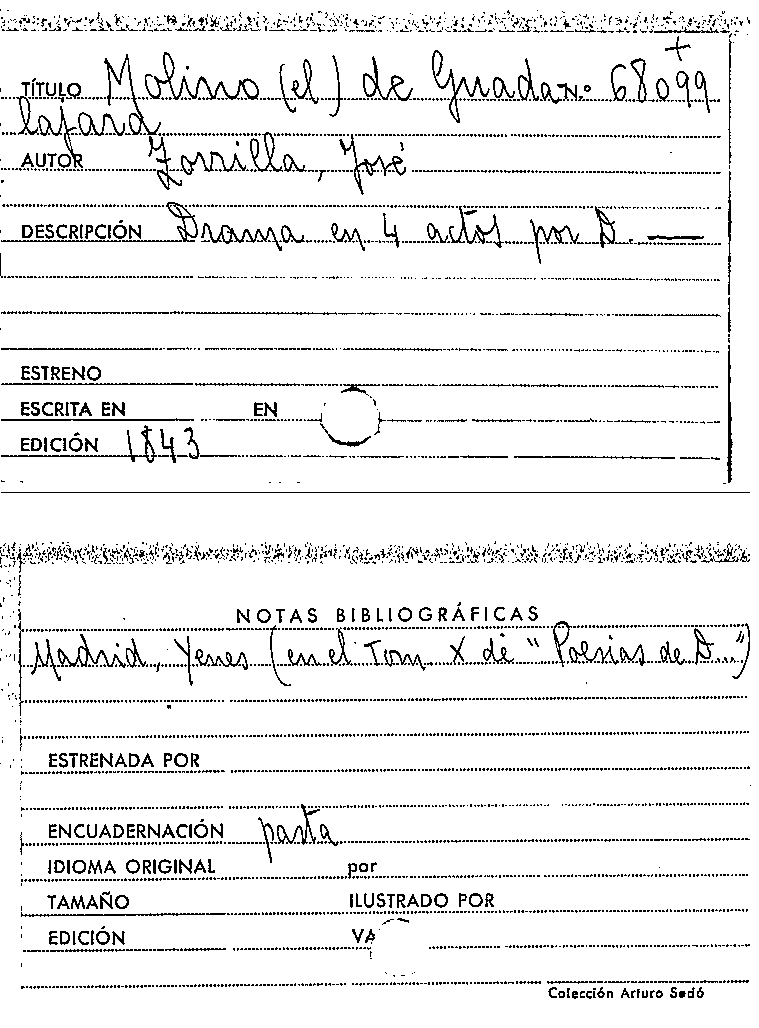 +
TÍTULO Molino (el) de Guada N.º 68099
lajara
AUTOR Zorrilla, José
DESCRIPCIÓN Drama en 4 actos por D. —
ESTRENO
ESCRITA EN EN
EDICIÓN 1843
NOTAS BIBLIOGRÁFICAS
Madrid, Yenes (en el Tom X de "Poesias de D...")
ESTRENADA POR
ENCUADERNACIÓN pasta
IDIOMA ORIGINAL por
TAMAÑO ILUSTRADO POR
EDICIÓN VA
Colección Arturo Sedó